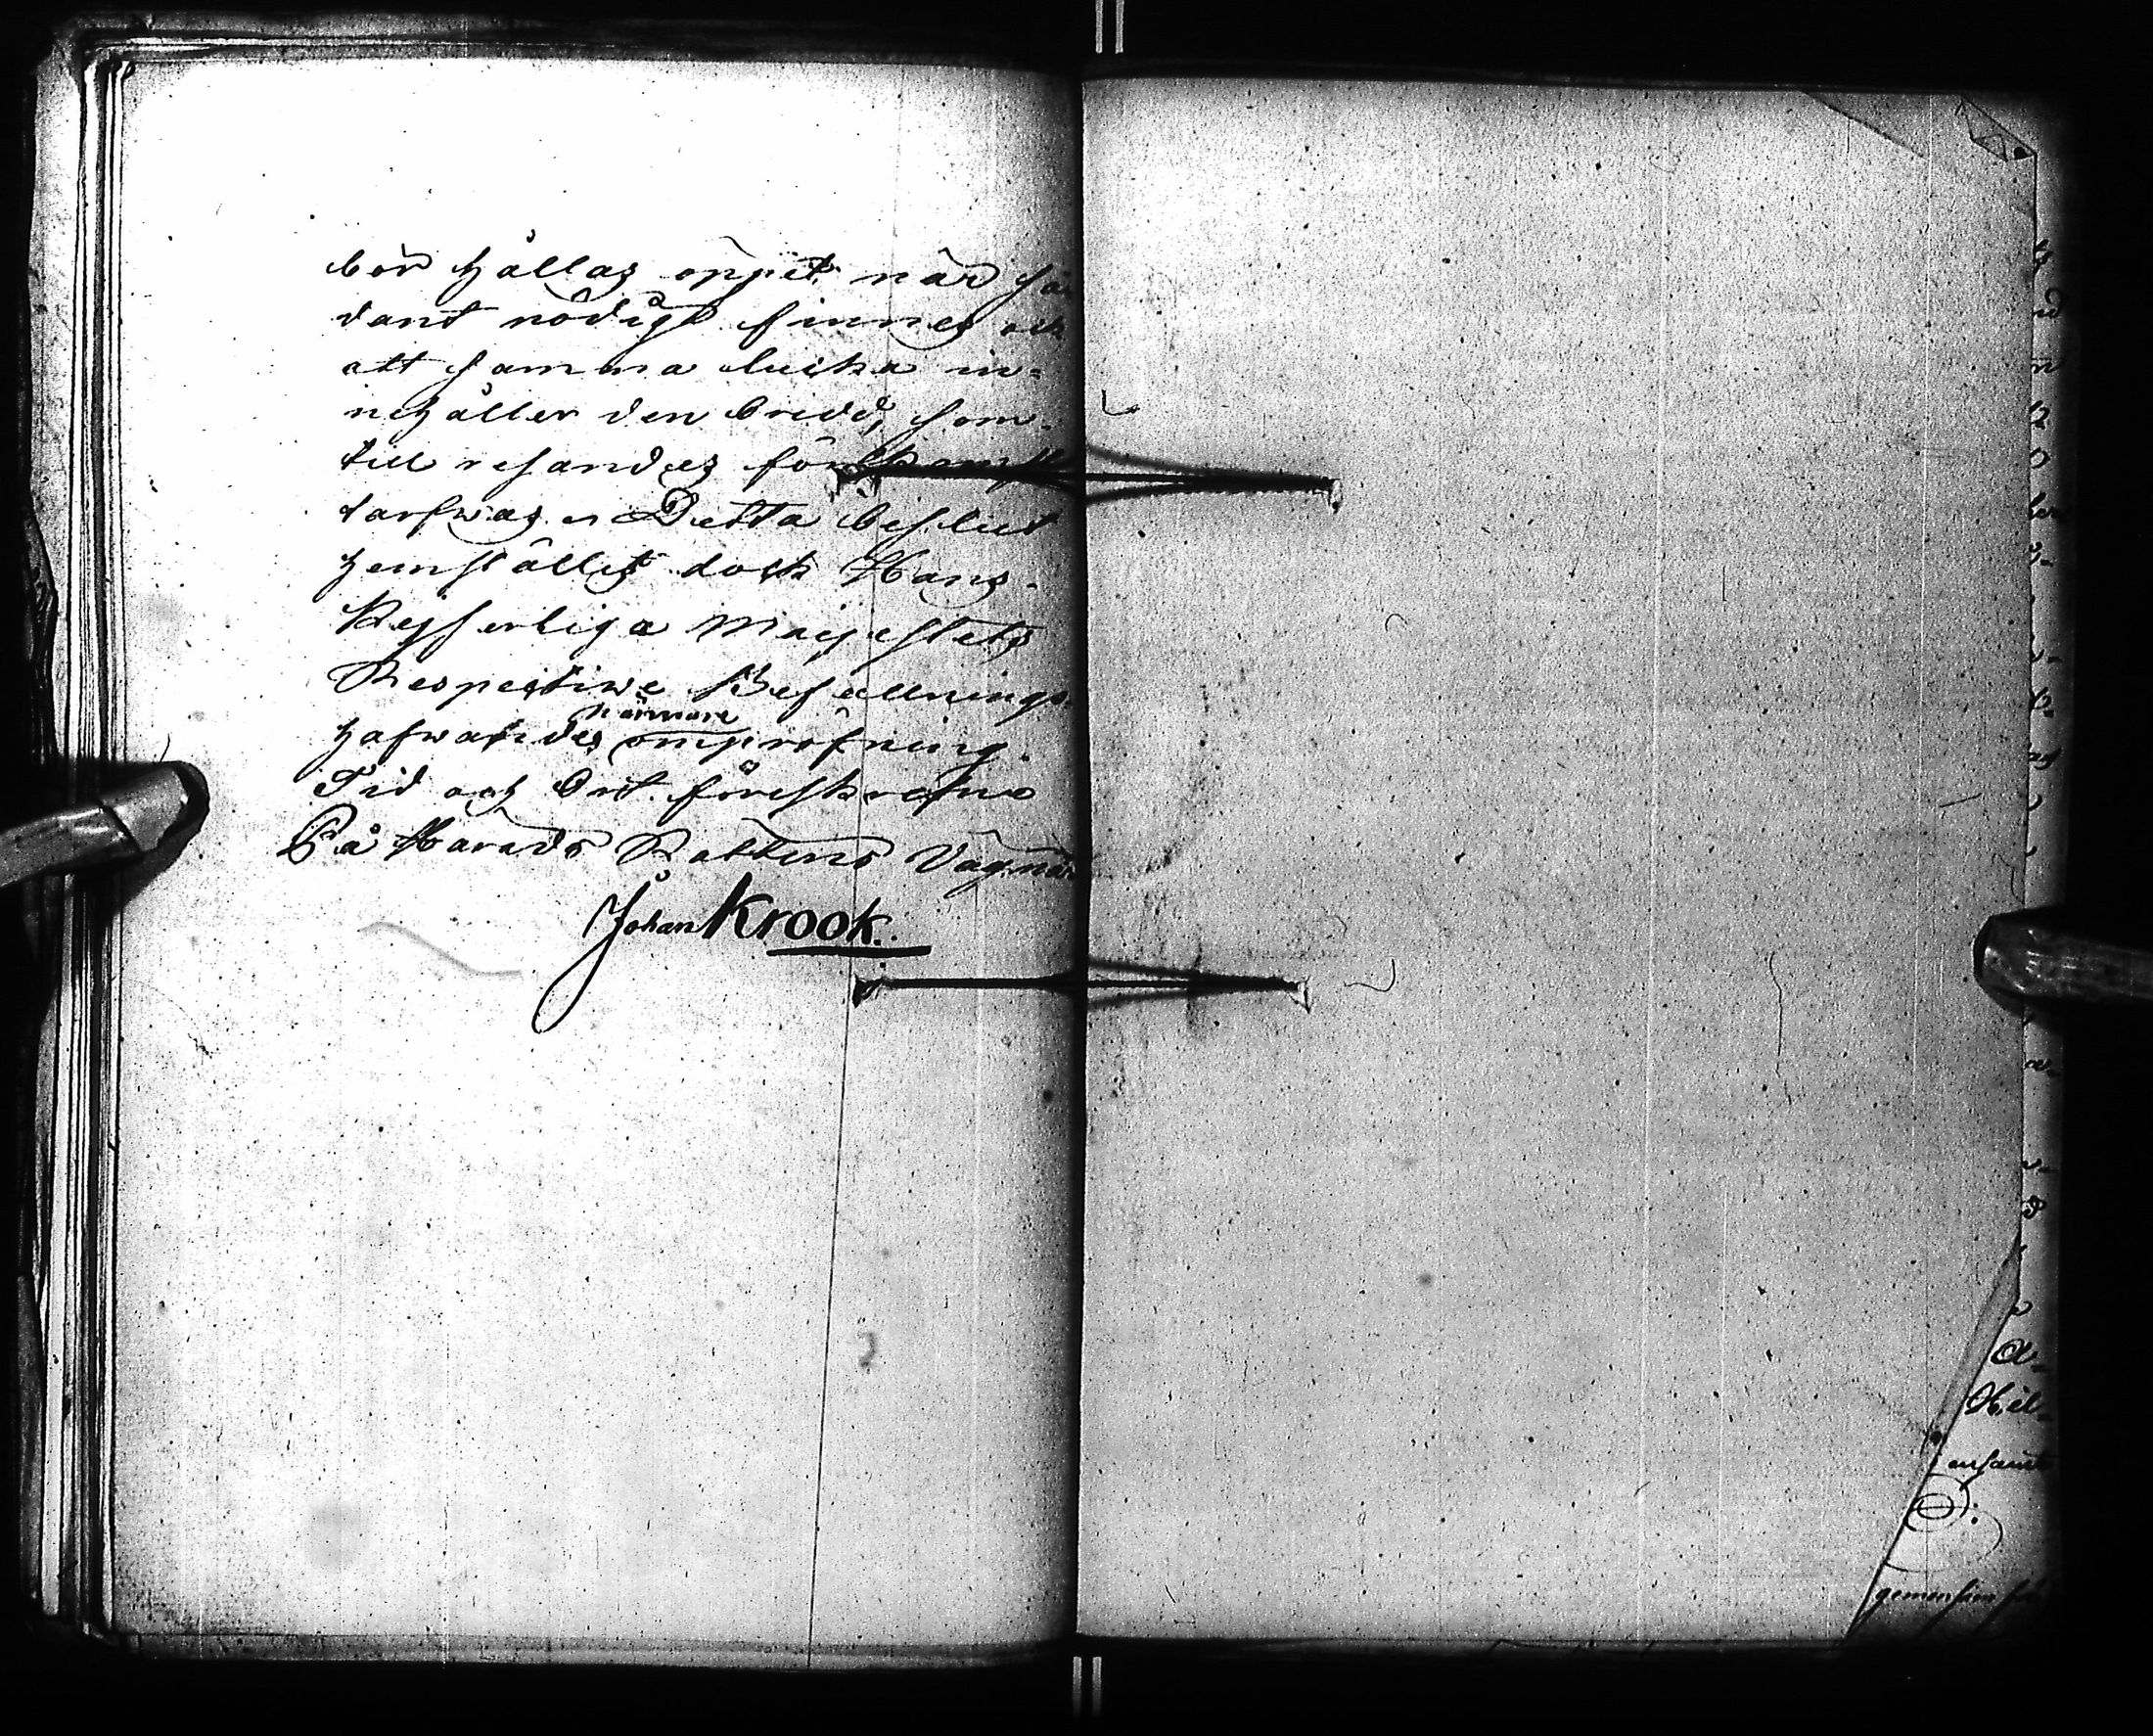 bör hållas öppet när så
dant nödigt finnes och
att samma lucka in=
nehåller den bredd, som
till resandes förekomst
tarfwas. Detta beslut
hemställes dock Hans
Kejserliga Majestets
Respective Befallnings
hafwandes närmare ompröfning.
Tid och Ort föreskrefne
På Härads Rättens Vägnar
Johan Krook.
Hel=